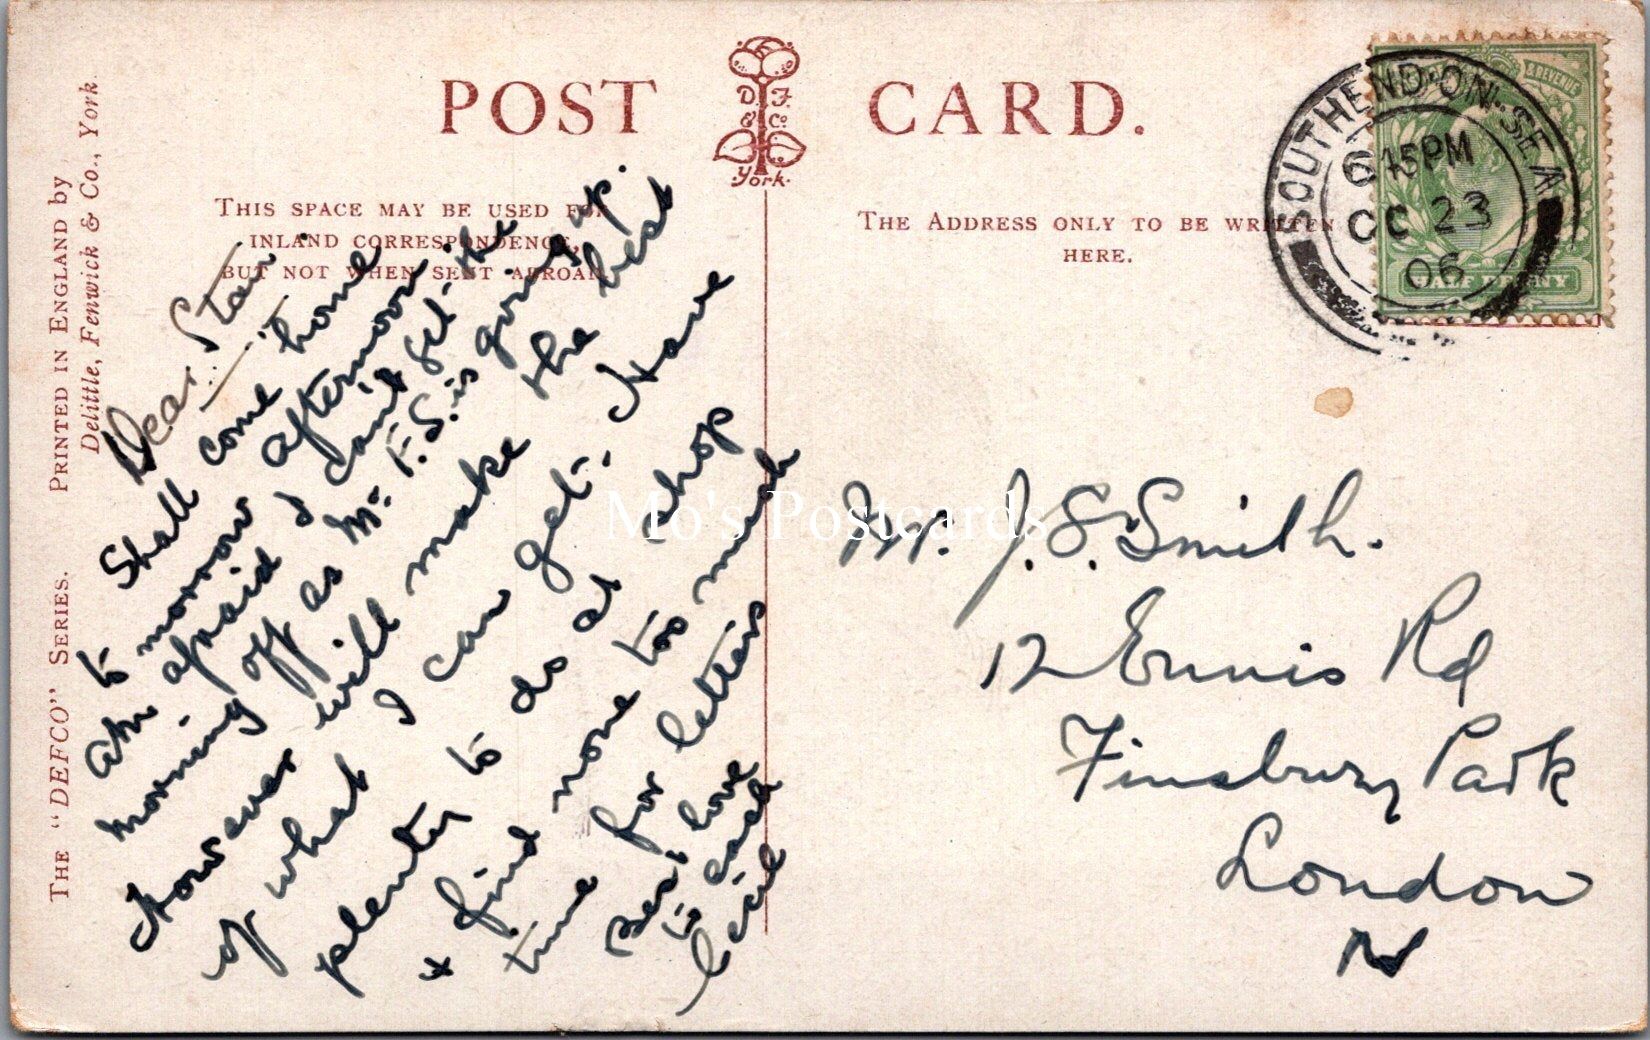 POST CARD.
D. F. & Co. York.
THIS SPACE MAY BE USED FOR
INLAND CORRESPONDENCE,
BUT NOT WHEN SENT ABROAD.
THE ADDRESS ONLY TO BE WRITTEN
HERE.
THE "DEFCO" SERIES.
PRINTED IN ENGLAND by
Delittle, Fenwick & Co., York
SOUTHEND-ON-SEA
6 45PM
OC 23
06
& REVENUE
HALF PENNY
Dear Stan
Shall come home
to morrow afternoon
am afraid I can't get the
morning off as Mr F.S. is going up.
However will make the best
of what I can get. Have
plenty to do at shop
& find none too much
time for letters
Best love
to each
Cecil
Mr. J. S. Smith.
12 Ennis Rd
Finsbury Park
London
N
Mo's Postcards